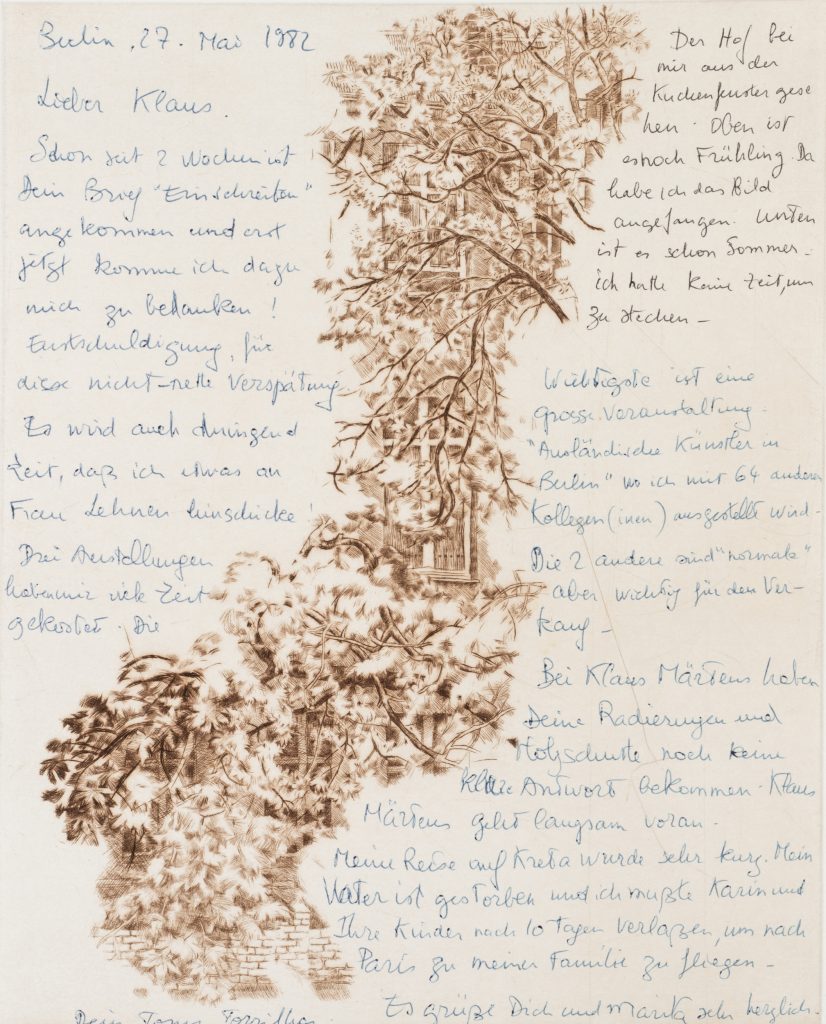 Berlin, 27. Mai 1982
Lieber Klaus.
Schon seit 2 Wochen ist
Dein Brief "Einschreiben"
angekommen und erst
jetzt komme ich dazu
mich zu bedanken!
Entschuldigung, für
diese nicht-nette Verspätung.
Es wird auch dringend
Zeit, daß ich etwas an
Frau Lehnen hinschicke!
Drei Austellungen
haben mir viele Zeit
gekostet. Die
Wichtigste ist eine
grosse Veranstaltung.
"Ausländische Künstler in
Berlin" wo ich mit 64 anderen
Kollegen(inen) ausgestellt wird-
Die 2 andere sind "normale"
aber wichtig für den Ver-
kauf -
Bei Klaus Märtens haben
Deine Radierungen und
Holzschnitte noch keine
klare Antwort bekommen. Klaus
Märtens geht langsam voran.
Meine Reise auf Kreta wurde sehr kurz. Mein
Vater ist gestorben und ich mußte Karin und
Ihre Kinder nach 10 Tagen verlaßen, um nach
Paris zu meiner Familie zu fliegen -
Es grüße Dich und Marita sehr herzlich.
Dein
Der Hof bei
mir aus der
Küchenfenster gese
hen. Oben ist
es noch Frühling. Da
habe ich das Bild
angefangen. Unten
ist es schon Sommer-
ich hatte keine Zeit, um
zu stechen -